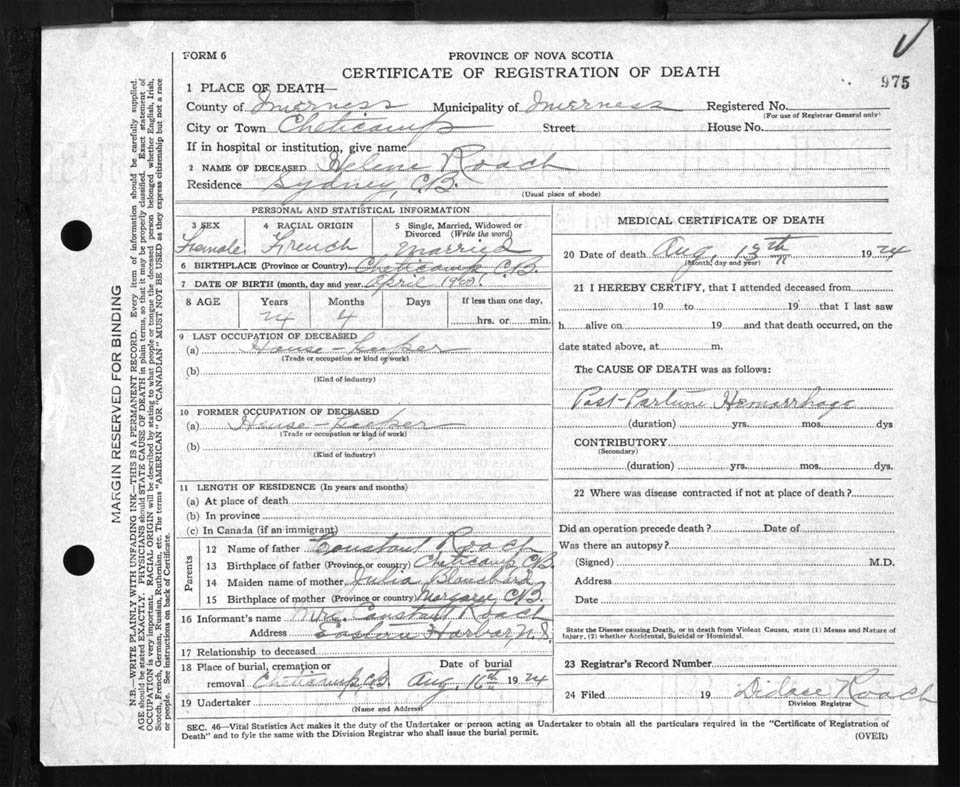 FORM 6
PROVINCE OF NOVA SCOTIA
CERTIFICATE OF REGISTRATION OF DEATH
975
1 PLACE OF DEATH—
County of Inverness Municipality of Inverness Registered No.
(For use of Registrar General only)
City or Town Cheticamp Street House No.
If in hospital or institution, give name
2 NAME OF DECEASED Helene Roach
Residence Sydney, C.B.
(Usual place of abode)
PERSONAL AND STATISTICAL INFORMATION
3 SEX 4 RACIAL ORIGIN 5 Single, Married, Widowed or Divorced (Write the word)
Female French Married
6 BIRTHPLACE (Province or Country) Cheticamp C.B.
7 DATE OF BIRTH (month, day and year) April 1900.
8 AGE Years Months Days If less than one day,
24 4 hrs. or min.
9 LAST OCCUPATION OF DECEASED
(a) House-keeper
(Trade or occupation or kind of work)
(b)
(Kind of industry)
10 FORMER OCCUPATION OF DECEASED
(a) House-keeper
(Trade or occupation or kind of work)
(b)
(Kind of industry)
11 LENGTH OF RESIDENCE (In years and months)
(a) At place of death
(b) In province
(c) In Canada (if an immigrant)
Parents
12 Name of father Constant Roach
13 Birthplace of father (Province or country) Cheticamp C.B.
14 Maiden name of mother Julia Blanchard
15 Birthplace of mother (Province or country) Margaree C.B.
16 Informant's name Mrs. Constant Roach
Address Eastern Harbor N.S.
17 Relationship to deceased
18 Place of burial, cremation or removal Cheticamp, C.B. Date of burial Aug. 16th 1924
19 Undertaker
(Name and Address)
MEDICAL CERTIFICATE OF DEATH
20 Date of death Aug. 13th 1924
(Month, day and year)
21 I HEREBY CERTIFY, that I attended deceased from
19 to 19 that I last saw
h alive on 19 and that death occurred, on the
date stated above, at m.
The CAUSE OF DEATH was as follows:
Post-Partum Hemorrhage
(duration) yrs. mos. dys
CONTRIBUTORY
(Secondary)
(duration) yrs. mos. dys.
22 Where was disease contracted if not at place of death?
Did an operation precede death? Date of
Was there an autopsy?
(Signed) M.D.
Address
Date
State the Disease causing Death, or in death from Violent Causes, state (1) Means and Nature of
Injury, (2) whether Accidental, Suicidal or Homicidal.
23 Registrar's Record Number
24 Filed 19 Roach
Division Registrar
SEC. 46—Vital Statistics Act makes it the duty of the Undertaker or person acting as Undertaker to obtain all the particulars required in the "Certificate of Registration of
Death" and to fyle the same with the Division Registrar who shall issue the burial permit.
(OVER)
MARGIN RESERVED FOR BINDING
N.B.—WRITE PLAINLY WITH UNFADING INK—THIS IS A PERMANENT RECORD. Every item of information should be carefully supplied.
AGE should be stated EXACTLY. PHYSICIANS should STATE CAUSE OF DEATH in plain terms, so that it may be properly classified. Exact statement of
OCCUPATION is very important. RACIAL ORIGIN will be described by stating to what people or tongue the deceased person belonged whether English, Irish,
Scotch, French, German, Russian, Ruthenian, etc. The terms "AMERICAN" OR "CANADIAN" MUST NOT BE USED as they express citizenship but not a race
or people. See instructions on back of Certificate.